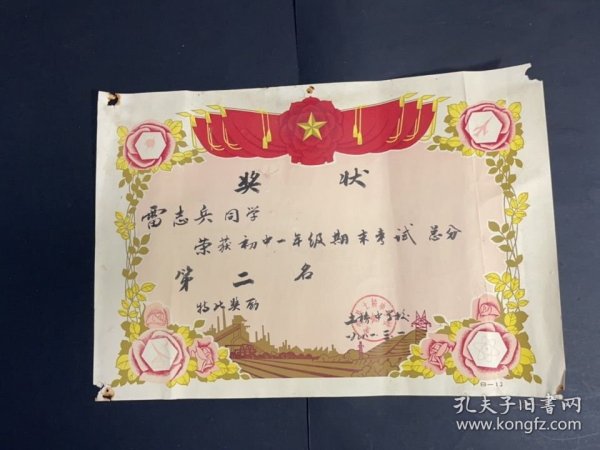 奖 状
雷志兵同学
荣获初中一年级期末考试总分
第二名
特此奖励
中学校
孔夫子旧书网
www.kongfz.com